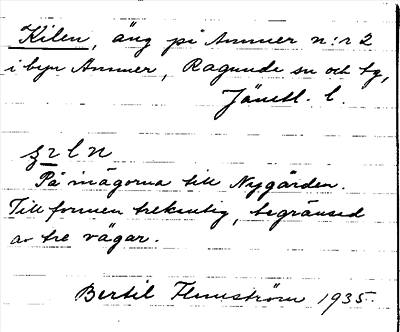 Kilen, äng på Ammer n:r 2
i byn Ammer, Ragunda sn och tg,
Jämtl. l.
På inägorna till Nygården.
Till formen trekantig, begränsad
av tre vägar.
Bertil Flemström 1935.